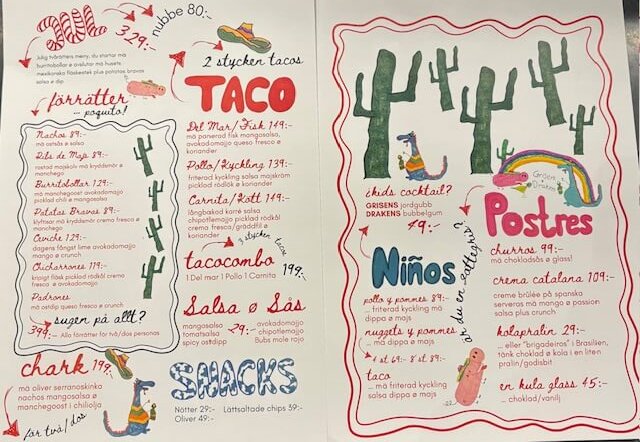 JUL 329:- nubbe 80:-
Julig tvårätters meny, du startar må
burritobollar ø avslutar må husets
mexikanska fläskestek plus patatas bravas
salsa ø dip.
förrätter
... poquito!
Nachos 89:-
må ostsås ø salsa
Ribs de Majs 89:-
rostad majskolv må kryddsmör ø
manchego
Burritobollar 129:-
må manchegoost avokadomajjo
picklad chili ø mangosalsa
Patatas Bravas 89:-
klyftisar må kryddsmör crema fresco ø
manchego
Crunche 129:-
dagens fångst lime avokadomajjo
mango ø crunch
Chicharrones 119:-
krispigt fläsk picklad rödkål crema
fresco ø avokadomajjo
Padrones
må ostdip queso fresco ø crunch
sugen på allt?
399:- Alla förrätter för två/dos personas
chark 199:-
må oliver serranoskinka
nachos mangosalsa ø
manchegoost i chiliolja
för två/dos
2 stycken tacos
TACO
Del Mar/Fisk 149:-
må panerad fisk mangosalsa,
avokadomajjo queso fresco ø
koriander
Pollo/Kyckling 139:-
friterad kyckling salsa majskräm
picklad rödlök ø koriander
Carnita/Kött 149:-
långbakad karré salsa
chipotlemajjo picklad rödkål
crema fresca/gräddfil ø
koriander
3 stycken tacos
tacocombo 199:-
1 Del mar 1 Pollo 1 Carnita
Salsa ø Sås
mangosalsa
tomatsalsa
spicy ostdipp
29:-
avokadomajjo
chipotlemajjo
Bubs mole rojo
SNACKS
Nötter 29:- Lättsaltade chips 39:-
Oliver 49:-
skids cocktail?
GRISENS jordgubb
DRAKENS bubbelgum
49:-
Niños
pollo y pommes 89:-
... friterad kyckling må
dippa ø majs
nuggets y pommes
... må dippa ø majs
4 st 69:- 8 st 89:-
taco
... må friterad kyckling
salsa dippa ø majs
är du en kaffegris?
Grisen
ø
Draken
Postres
churros 99:-
må chokladsås ø glass!
crema catalana 109:-
creme brûlée på spanska
serveras må mango ø passion
salsa plus crunch
kolapralin 29:-
... eller "brigadeiros" i Brasilien,
tänk choklad ø kola i en liten
pralin/godisbit
en kula glass 45:-
... choklad/vanilj